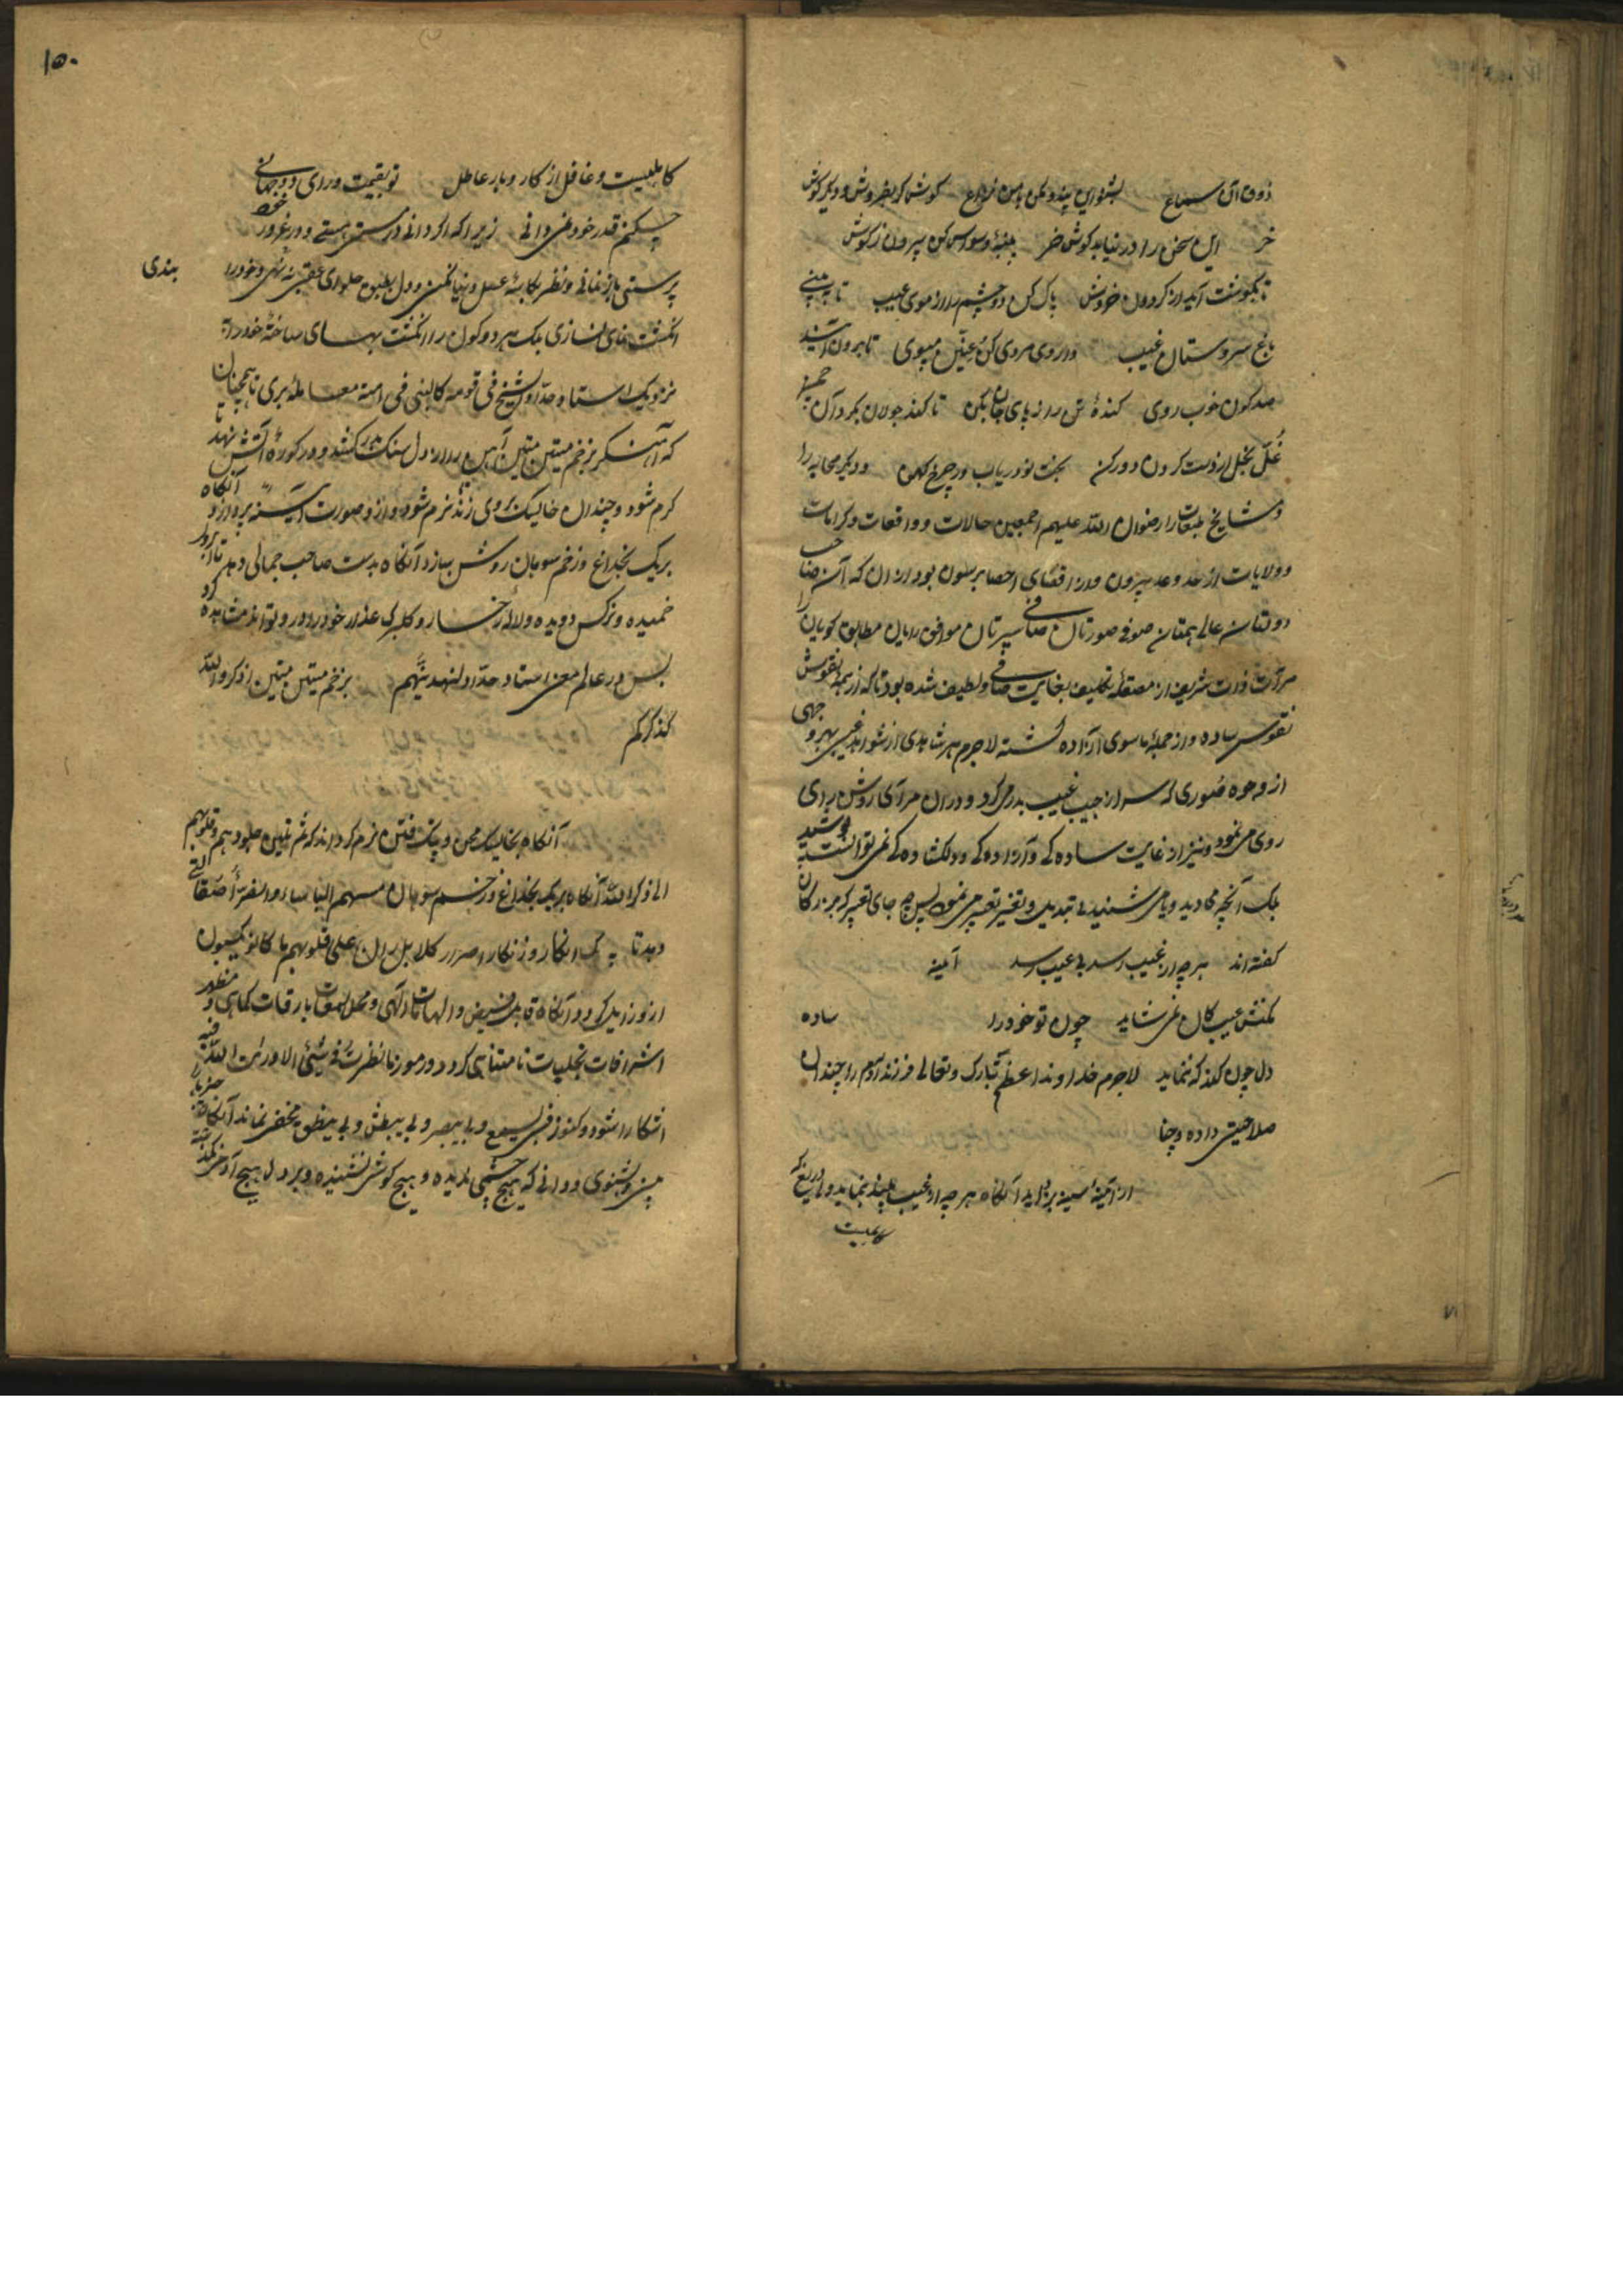 ذوق آن سماع بشنو این پند و مکن با من نزاع گوش خر بفروش و دیگر گوش
خر این سخن را در نیابد گوش خر پنبهٔ وسواس کن بیرون ز گوش
تا بگوشت آید از گردون خروش پاک کن دو چشم را از موی عیب تا ببینی
باغ سروستان غیب داروی مردی کن و عنین مپوی تا برون آیند
صد گون خوب روی کندهٔ تن را ز پای جان بکن تا کند جولان بگرد آن چمن
غل بخل از دست و گردن دور کن بخت نو دریاب در چرخ کهن و دیگر صحابه را
و مشایخ طبقات را رضوان الله علیهم اجمعین حالات و واقعات و کرامات
و ولایات از حد و عد بیرون و از اقصای احصا بر سلون بود از آن که آن صاحب
دولتان عالی همتان صوفی صورتان صافی سیرتان موافق رایان مطابق گویان را
مرآت ذات شریف از مصقلهٔ تکلیف بغایت صافی و لطیف شده بود تا که از همه نقوش
نفوس ساده و از جملهٔ ماسوی آزاده گشته لاجرم هر شاهدی از شواهد غیبی بهر وجهی
از وجوه صوری که سر از جیب غیب بدر می کرد و در آن مرآی روشن برای
روی می نمود و نیز از غایت ساده گی و آزاده گی و دلگشاده گی نمی توانست پوشید
بلک آنچه می دید و یا می شنید بی تبدیل و تغیر تعبیر می نمود پس چه جای تعبیر که بزرگان
گفته اند هر چه از غیب رسد بی عیب رسد آینه
کنش عیب کان نمی شاید چون تو خود را ساده
دل چون کند که ننماید لاجرم خداوند اعظم تبارک و تعالی فرزند آدم را چندان
صلاحیتی داده و چنا
از آینهٔ سینه بزداید آنگاه هر چه از غیب بیند بنماید ولی دریغ که
کاهلیست
۱۵۰
کاهلیست و غافل از کار و بار عاطل تو بقیمت ورای دو جهانی
چکنم قدر خود نمی دانی زیرا که اگر دانی در سستی هستی و در غرور خود
پرستی باز نمانی و نظر بکاسهٔ عسل دنیا نکنی و دل بطبق حلوای عقبی ننهی و خود را بندی
انگشت نمای نسازی بلک هر دو کون را انگشت بهای ساخته خود را
نزدیک استاد حداد الشیخ فی قومه کالنبی فی امته معامله بری تا همچنان
که آهنگر بزخم میتین متین آهن را از دل سنگ بدر کشد و در کورهٔ آتش نهد تا
گرم شود و چندان خایسک بروی زند نرم شود و ازو صورت آینه بر دارد و آنگاه
بریگ بخداغ و زخم سوهان روشن سازد آنگاه بدست صاحب جمالی دهد تا ابروی
خمیده و نرگس دو دیده و لالهٔ رخسار و گلبرگ عذار خود را در و تواند مشاهده کرد
پس در عالم معنی استاد حداد لنهدینهم بزخم میتین متین اذکروا الله
کذکرکم
آنگاه بخایسک محن و پتک فتن نرم گرداند که ثم تلین جلودهم و قلوبهم
الی ذکر الله آنگاه بریگ بخداغ و زخم سوهان مستهم الباساء و الضراء صقالتی
دهد تا انکار و زنگار اصرار کلا بل ران علی قلوبهم ما کانوا یکسبون
ازو زایل گردد و آنگاه قابل فیض و الهامات الهی و محل لمعات بارقات کماهی و منظور
اشراقات تجلیات نامتناهی گردد و رموز ما نظرت فی شیء الا و رایت الله فیه
آشکارا شود و کنوز فبی یسمع و بی یبصر و بی یبطش و بی ینطق مخفی نماند آنگاه
بینی و بشنوی و دانی که هیچ چشمی ندیده و هیچ گوشی نشنیده و بر دل هیچ آدمی نگذشته